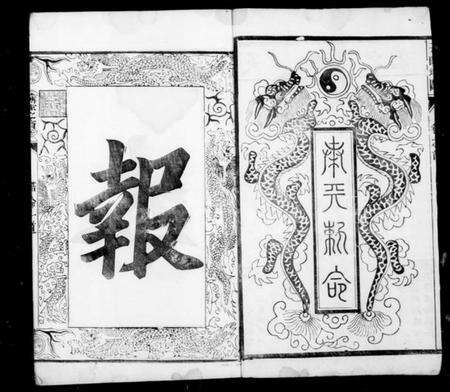 奉天勅命
報